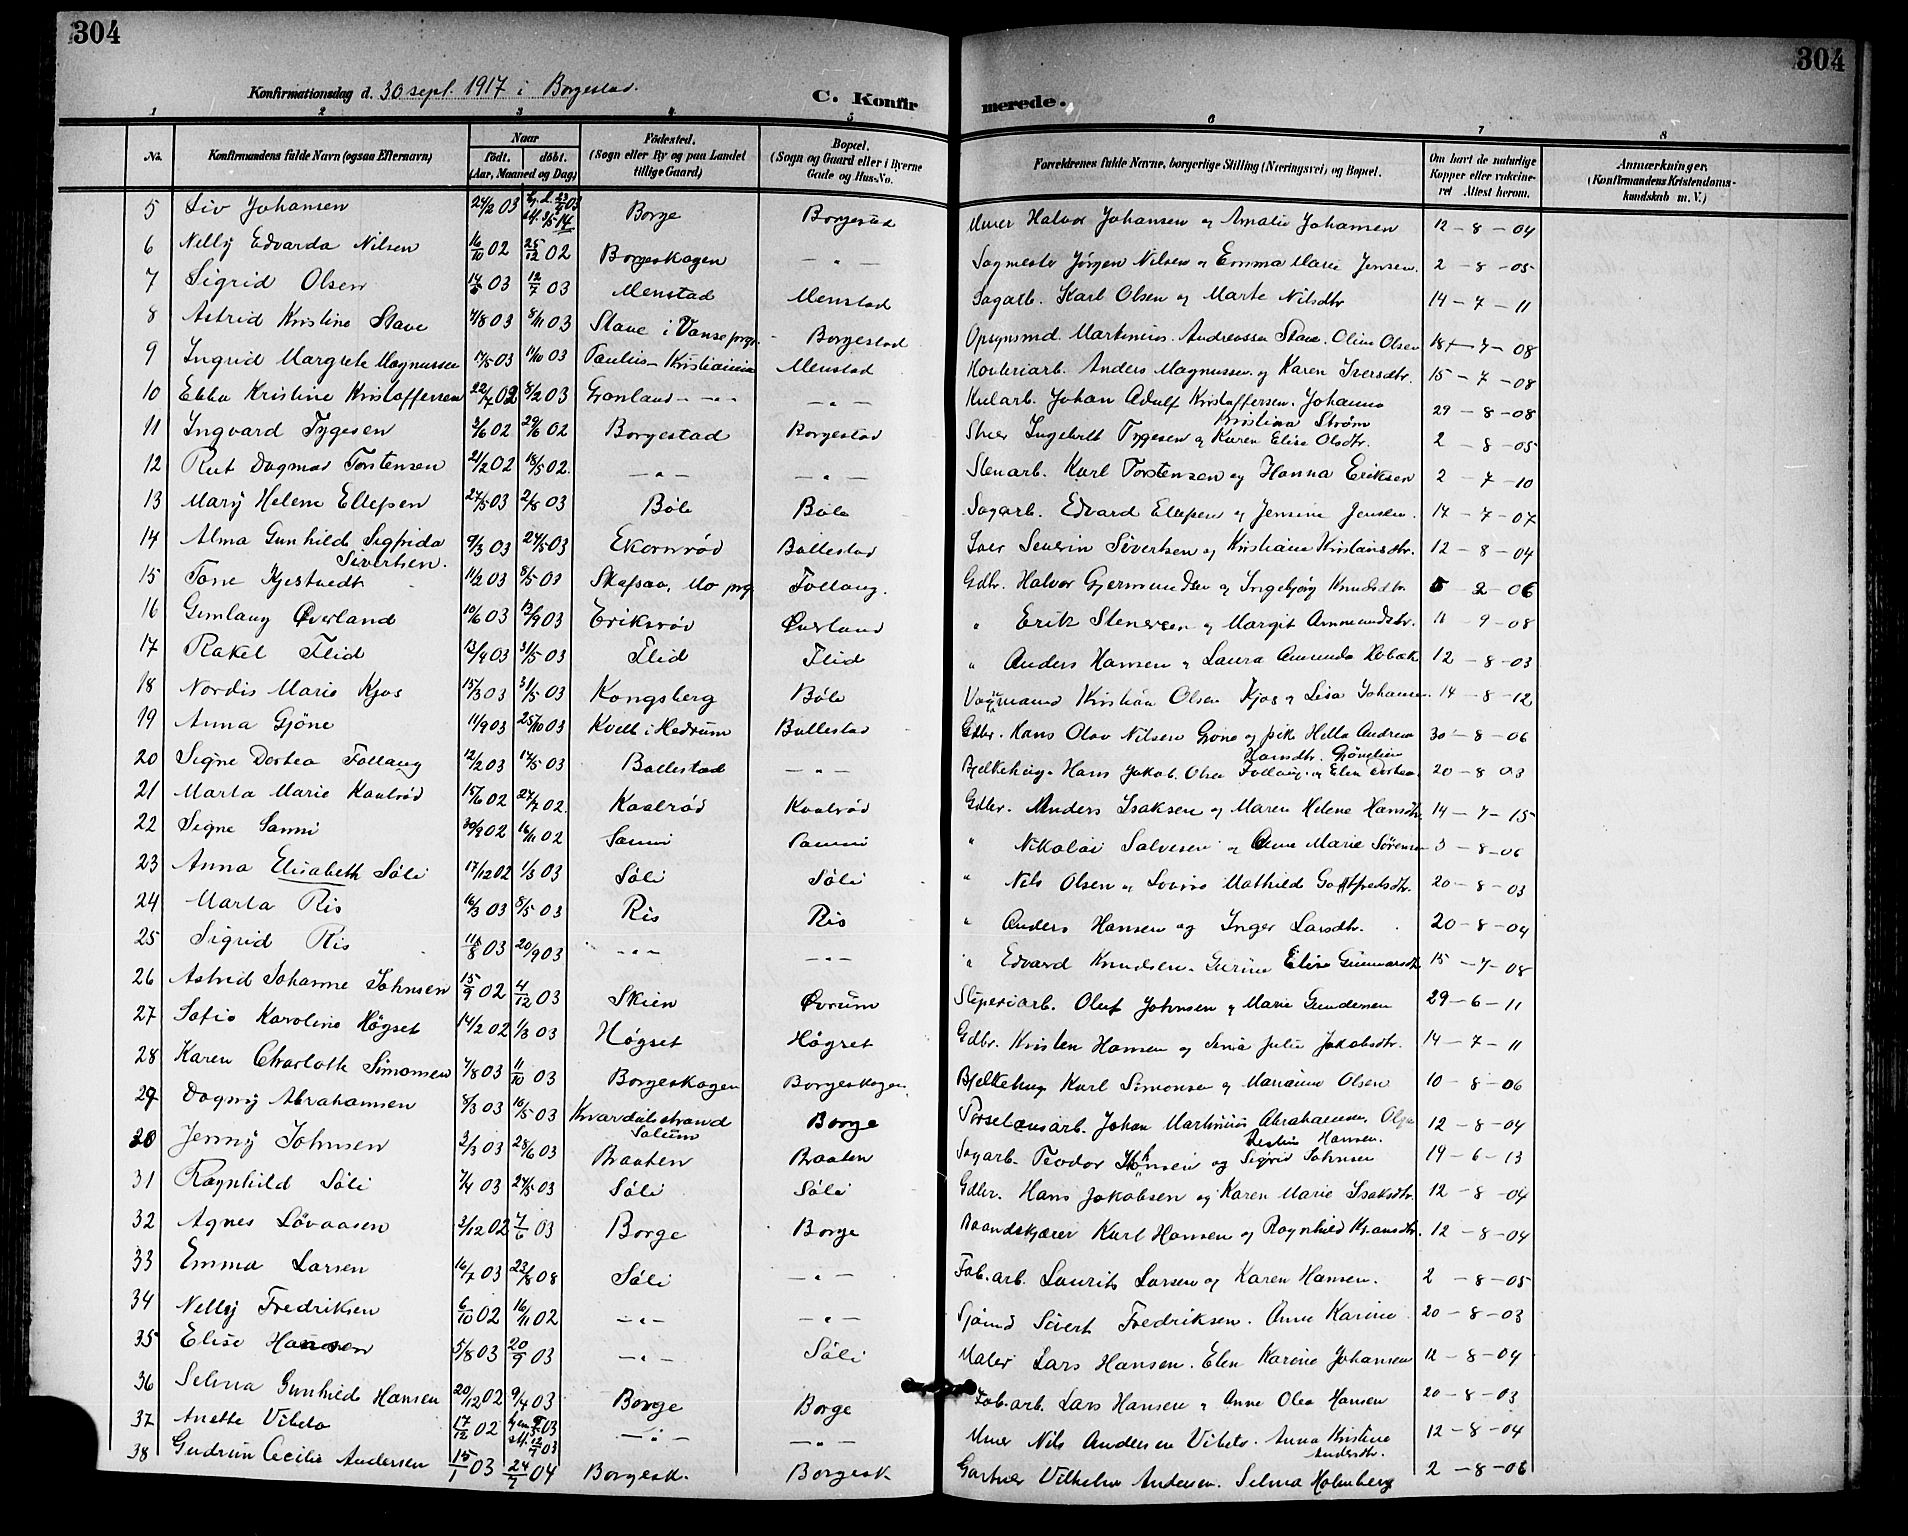 304
304
Konfirmationsdag d. 30 sept. 1917 i Borgestad.
C. Konfirmerede.
1 2 3 4 5 6 7 8
No. Konfirmandens fulde Navn (ogsaa Efternavn) Naar født. døbt. (Aar, Maaned og Dag) Fødested. (Sogn eller By og paa Landet tillige Gaard) Bopæl. (Sogn og Gaard eller i Byerne Gade og Hus-No. Forældrenes fulde Navne, borgerlige Stilling (Næringsvei) og Bopæl. Om havt de naturlige Kopper eller vakcineret Attest herom. Anmærkninger. (Konfirmandens Kristendomskundskab m. V.)
5 Liv Johansen 24/2 03 Borge Borgestad Murer Halvor Johansen og Amalie Johansen 12-8-04
6 Nelly Edvarda Nilsen 16/10 02 25/12 02 Borgeskogen -"- Sagmester Jørgen Nilsen og Emma Marie Jensen. 2-8-05
7 Sigrid Olsen 03 12/7 03 Menstad Menstad Sagarb. Karl Olsen og Marte Nilsdtr 14-7-11
8 Astrid Kristine Stave 7/8 03 8/11 03 Stave i Vanse prgj. Borgestad Opsynsmd. Martinius Andreassen Stave. Oline Olsen 18-7-08
9 Ingrid Margrete Magnussen 17/5 03 11/10 03 Paulus-Kristiania Menstad Høvleriarb. Anders Magnussen og Karen Iversdtr. 15-7-08
10 Ebba Kristine Kristoffersen 22/7 02 8/2 03 Grønland -"- -"- Kularb. Johan Adolf Kristoffersen. Johanne Kristina Strøm 29-8-08
11 Ingvard Tygesen 3/6 02 29/6 02 Borgestad Borgestad Ingebrett Tygesen og Karen Elise Olsdtr. 2-8-05
12 Rut Dagmar Torstensen 21/2 02 18/5 02 -"- -"- Stenarb. Karl Torstensen og Hanna Eriksen 2-7-10
13 Mary Helene Ellefsen 27/5 03 2/8 03 Bøle Bøle Sagarb. Edvard Ellefsen og Jensine Jensen. 14-7-07
14 Alma Gunhild Sigfrida Sivertsen. 9/3 03 24/5 03 Ekornrød Bøllestad Severin Sivertsen og Kristiane Kristiansdtr. 12-8-04
15 Tone Kjestvedt 11/2 03 8/5 03 Skafsaa, Mo prgj. Follaug. Gdbr. Halvor Gjermundsen og Ingebjørg Knudsdtr 5-2-06
16 Gunlaug Øverland 10/6 03 13/9 03 Eriksrød Øverland " Erik Stenersen og Margit Ammundsdtr. 11-9-08
17 Rakel Flid 12/4 03 31/5 03 Flid Flid " Anders Hansen og Laura Amunda Hobæk 12-8-03
18 Nordis Marie Kjos 15/3 03 31/5 03 Kongsberg Bøle Vognmand Kristian Olsen Kjos og Lisa Johansen. 14-8-12
19 Anna Gjøne 11/9 03 25/10 03 Kvelle i Hedrum Bøllestad Gdbr. Hans Olav Nilsen Gjone og pik Hella Andrea Hansdtr. Grønlien 30-8-06
20 Signe Dortea Follaug 12/2 03 17/5 03 Bøllestad -"- Bjelkehug. Hans Jakob Olsen Follaug og Elen Dortea 20-8-03
21 Marta Marie Kaalrød 15/6 02 27/7 02. Kaalrød Kaalrød Gdbr. Anders Isaksen og Maren Helene Hansdtr. 14-7-15
22 Signe Sanni 30/9 02 16/11 02 Sanni Sanni " Nikolai Salvesen og Anne Marie Sørensen 3-8-06
23 Anna Elisabeth Søli 17/12 02 1/3 03 Søli Søli " Nils Olsen og Lovise Mathilde Gottfredsdtr. 20-8-03
24 Marta Ris 16/3 03 8/5 03 Ris Ris " Anders Hansen og Inger Larsdtr. 20-8-04
25 Sigrid Ris 11/8 03 20/9 03 -"- -"- " Edvard Knudsen. Gurine Elise Gunnarsdtr 15-7-08
26 Astrid Johanne Johnsen 15/9 02 4/12 03 Skien Øvrum Sliperiarb. Oluf Johnsen og Marie Gundersen 29-6-11
27 Sofie Karoline Høgset 14/2 02 1/3 03 Høgset Høgset Gdbr. Kristen Hansen og Julie Jakobsdtr. 14-7-11
28 Karen Charlotte Simonsen 7/8 03 11/10 03 Borgeskogen Borgeskogen. Bjelkehug Karl Simonsen og Marianne Olsen 10-8-06
29 Dagny Abrahamsen 8/3 03 10/5 03 Knardalsstrand Solum Borge Porselænsarb. Johan Martinius Abrahamsen. Olga Hansen. 12-8-04
30 Jenny Johnsen 3/3 03 28/6 03 Braaten Braaten Sagarb. Teodor Johnsen og Sigrid Johnsen 19-6-13
31 Ragnhild Søli 7/4 03 24/5 03 Søli Søli Gdbr. Hans Jakobsen og Karen Marie Isaksdtr. 12-8-04
32 Agnes Løvaasen 3/12 02 7/6 03 Borge Borge Baandskjærer Karl Hansen og Ragnhild 12-8-04
33 Emma Larsen 16/7 03 23/8 08 Søli -"- Fab.arb. Laurits Larsen og Karen Hansen. 2-8-05
34 Nelly Fredriksen 6/10 02 16/11 02 -"- -"- Sjømd Sivert Fredriksen. Anne Karine 20-8-03
35 Elise Hansen 5/8 03 20/9 03 -"- Søli Maler Lars Hansen. Elen Karine Johansen 12-8-04
36 Selma Gunhilde Hansen 20/12 02 9/4 03 Borge Borge Fab.arb. Lars Hansen og Anne Olea Hansen 20-8-03
37 Anette Vibeto 17/12 02 -"- -"- Murer Nils Andersen Vibeto. Anna Kristine Andersdtr. 12-8-04
38 Gudrun Cecilie Andersen 15/1 03 24/7 04 Borgesk. Borgesk Gartner Vilhelm Andersen. Selma Holmberg 2-8-06